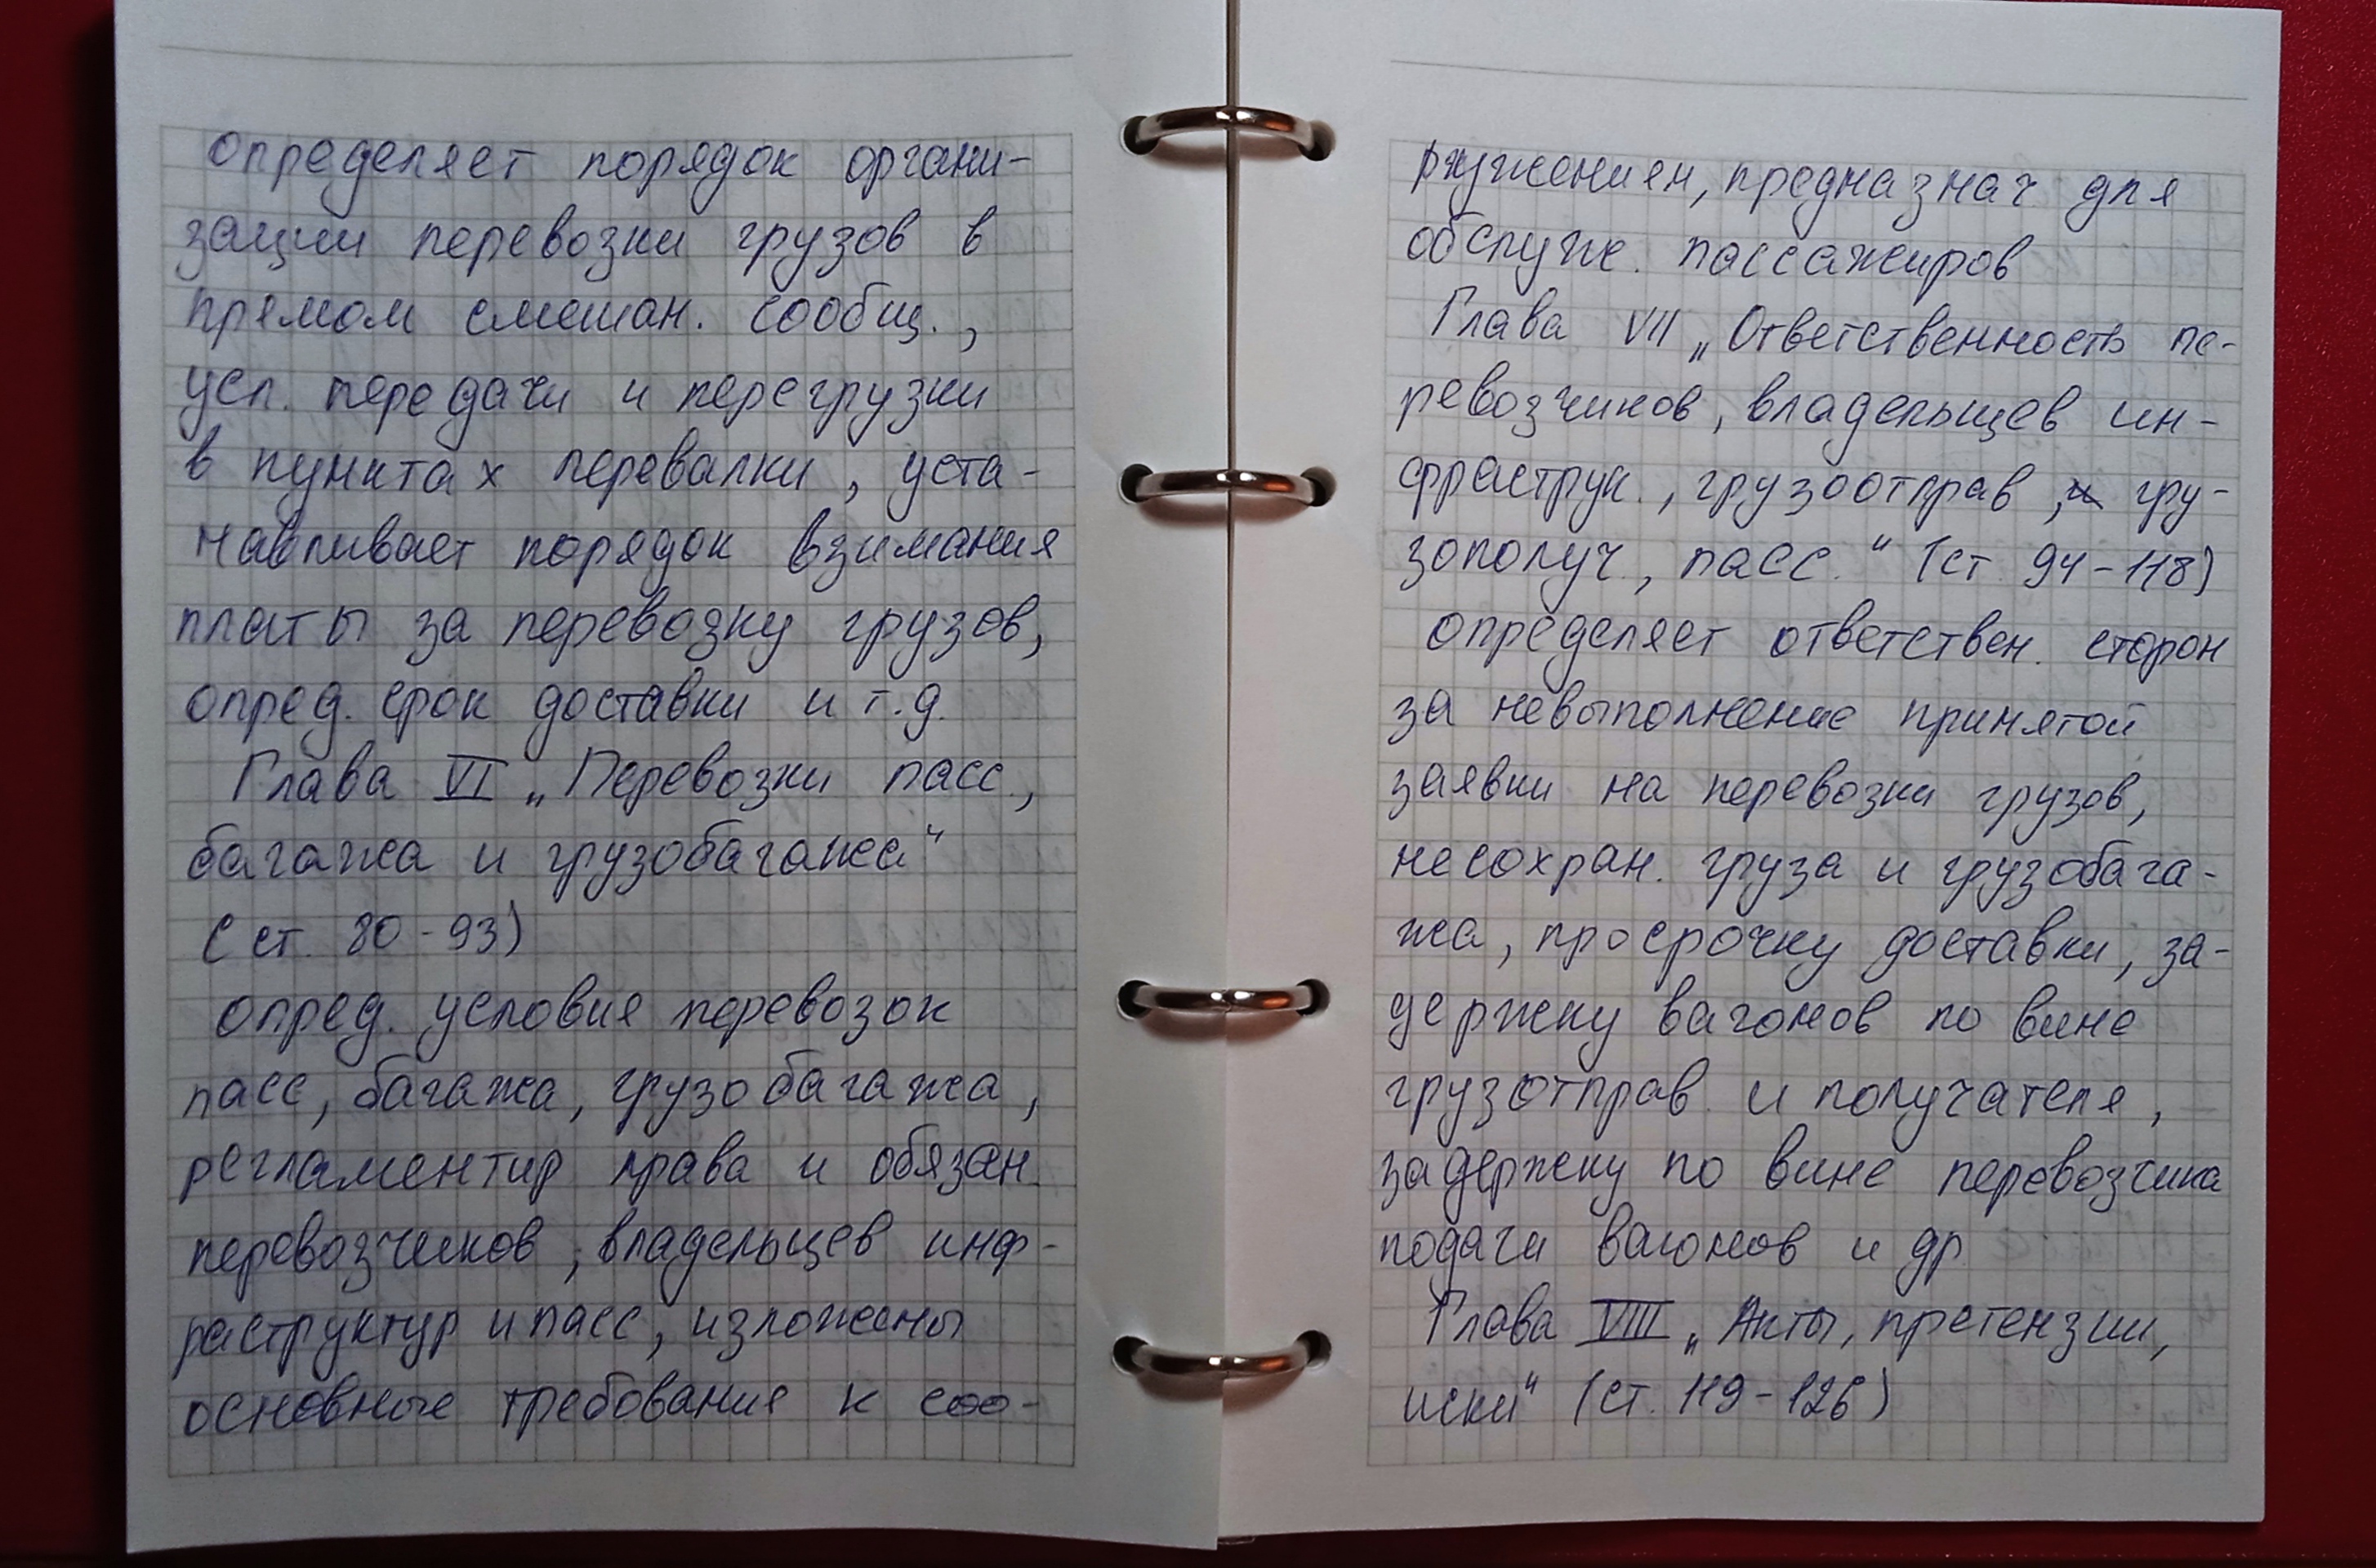 определяет порядок органи-
зации перевозки грузов в
прямом смешан. сообщ.,
усл. передачи и перегрузки
в пунктах перевалки, уста-
навливает порядок взимания
платы за перевозку грузов,
опред. срок доставки и т.д.
Глава VI „Перевозки пасс.,
багажа и грузобагажа“
(ст. 80-93)
опред. условия перевозок
пасс, багажа, грузобагажа,
регламентир права и обязан.
перевозчиков, владельцев инф-
раструктур и пасс, изложены
основные требования к соо-
ружениям, предназнач для
обслуж. пассажиров
Глава VII „Ответственность пе-
ревозчиков, владельцев ин-
фраструк., грузоотправ, гру-
зополуч., пасс.“ (ст. 94-118)
определяет ответствен. сторон
за невыполнение принятой
заявки на перевозки грузов,
несохран. груза и грузобага-
жа, просрочку доставки, за-
держку вагонов по вине
грузотправ. и получателя,
задержку по вине перевозчика
подачи вагонов и др.
Глава VIII „Акты, претензии,
иски“ (ст. 119-126)